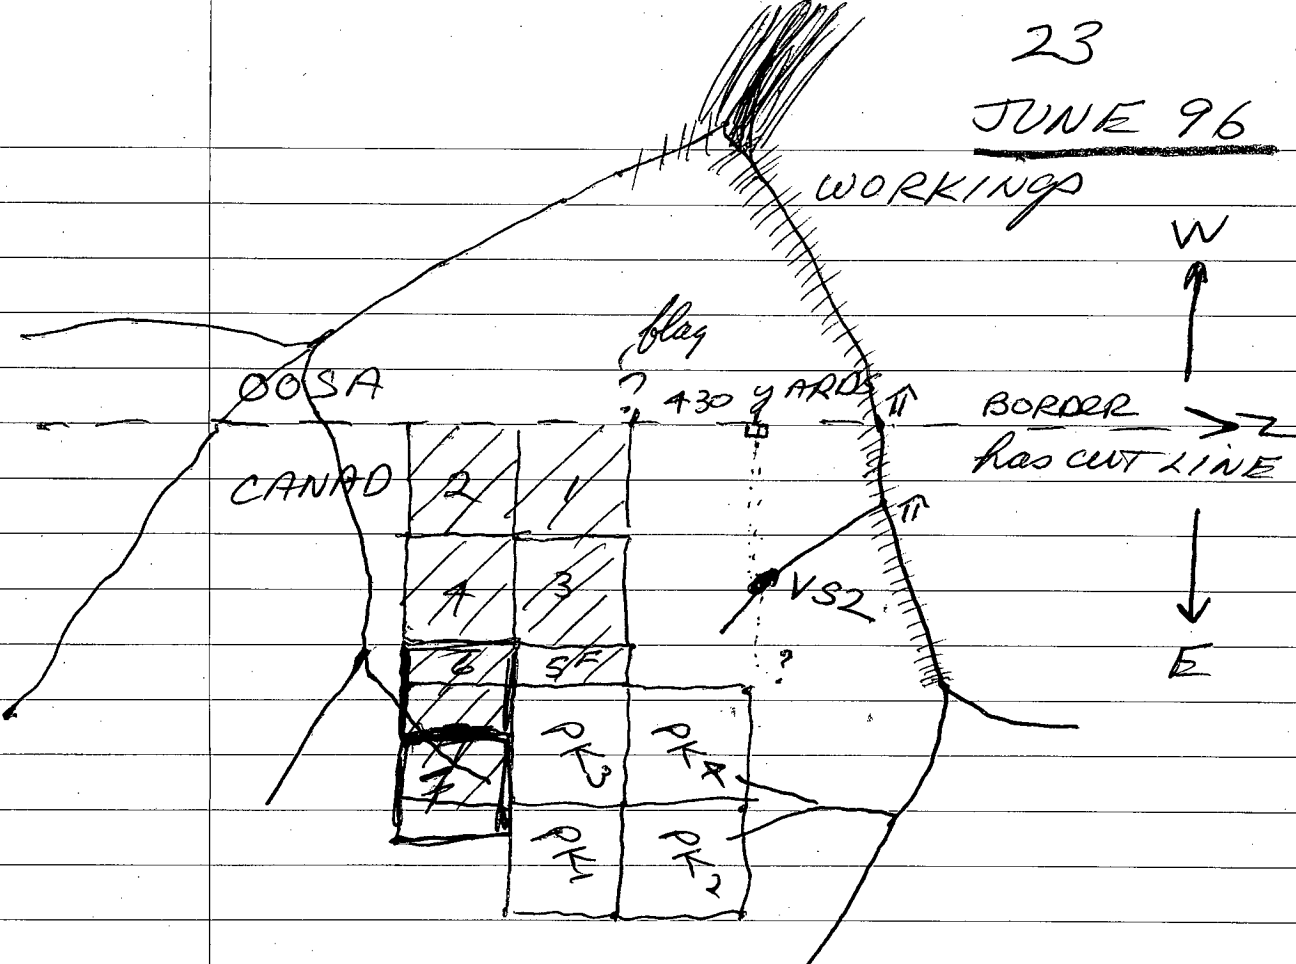 23
JUNE 96
WORKINGS
W
flag
?
430 YARDS
OOSA
BORDER
N
has cut LINE
CANAD
2
1
4
3
VS2
6
5F
?
E
PK3
PK4
7
PK1
PK2